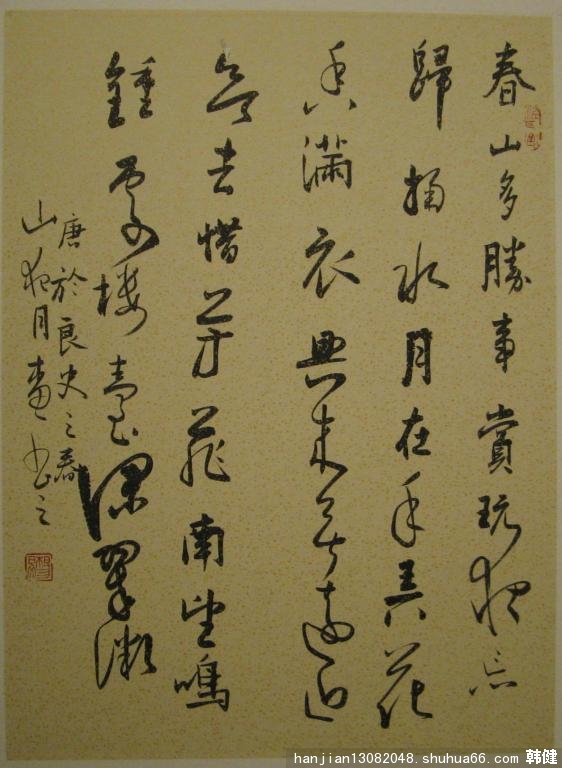 春山多勝事賞玩夜忘
歸掬水月在手弄花
香滿衣興來無遠近
欲去惜芳菲南望鳴
鍾處樓臺深翠微
唐於良史之春
山夜月书之
hanjian13082048.shuhua66.com 韩健